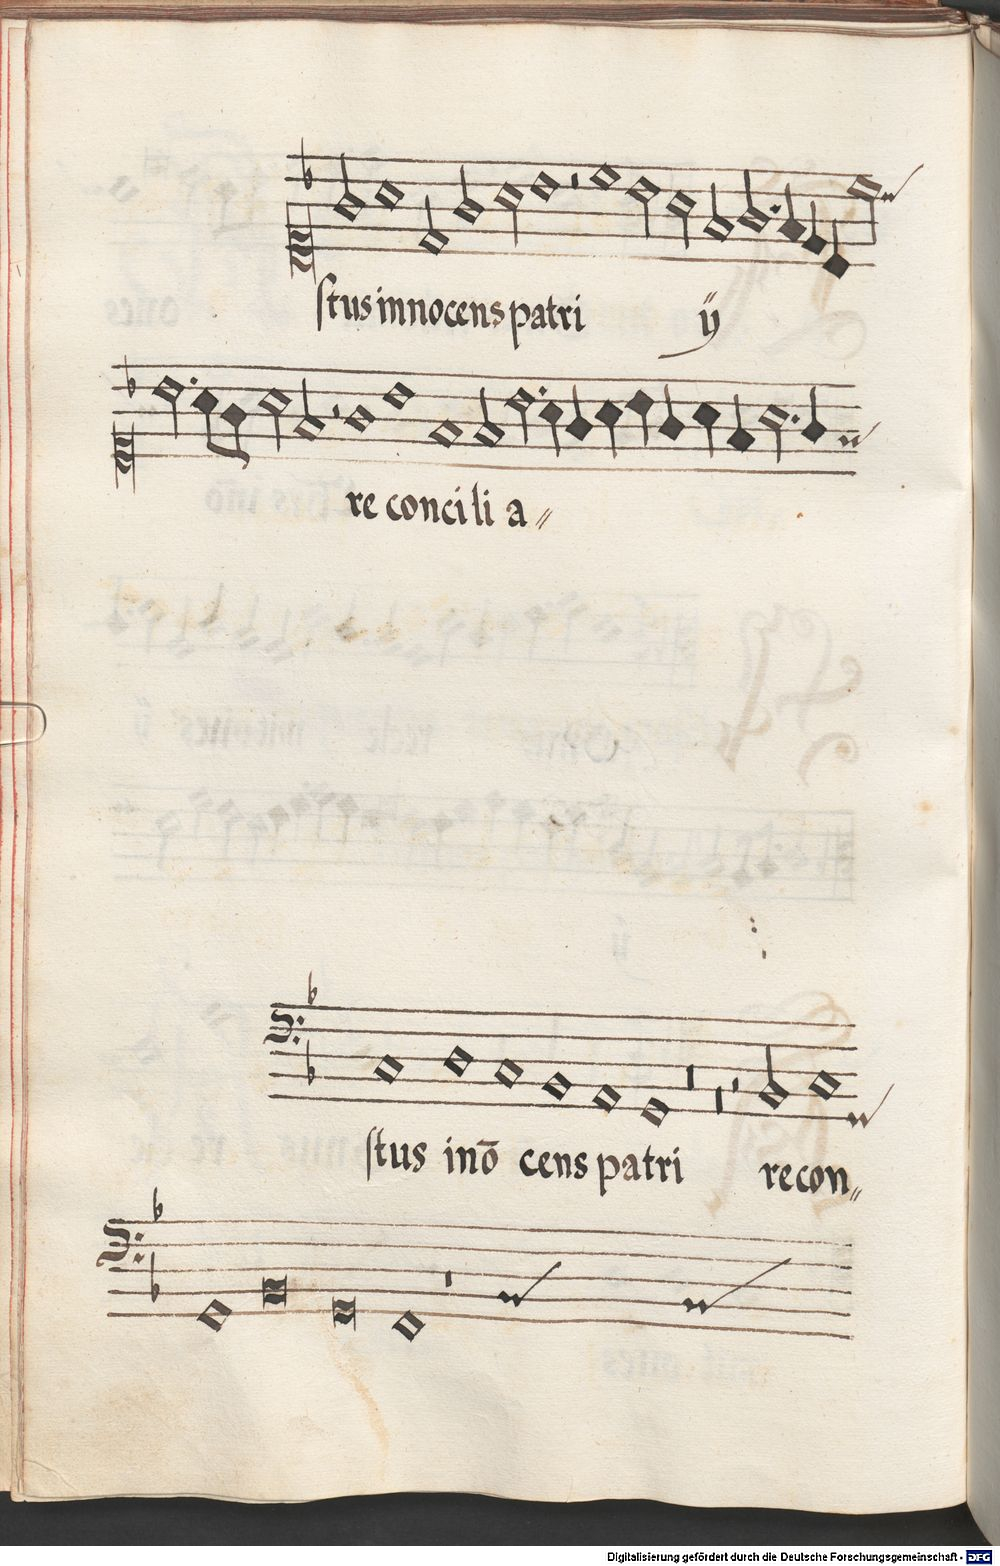 stus innocens patri ij
re concili a〃
stus inō cens patri recon〃
Digitalisierung gefördert durch die Deutsche Forschungsgemeinschaft - DFG